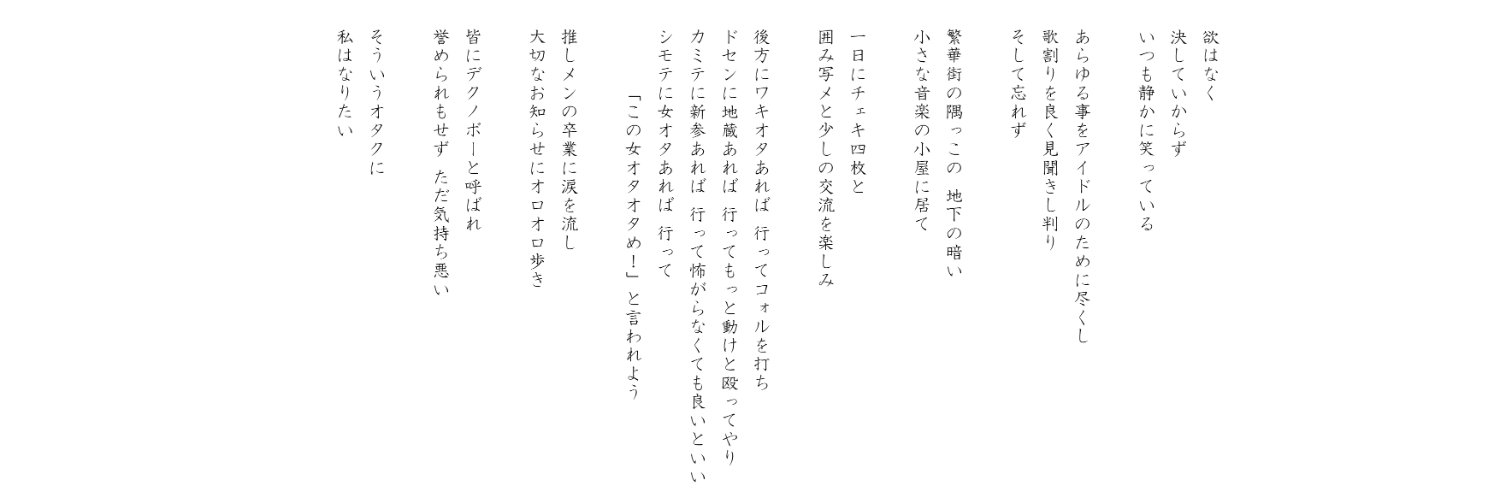 欲はなく
決していからず
いつも静かに笑っている
あらゆる事をアイドルのために尽くし
歌割りを良く見聞きし判り
そして忘れず
繁華街の隅っこの 地下の暗い
小さな音楽の小屋に居て
一日にチェキ四枚と
囲み写メと少しの交流を楽しみ
後方にワキオタあれば 行ってコォルを打ち
ドセンに地蔵あれば 行ってもっと動けと殴ってやり
カミテに新参あれば 行って怖がらなくても良いといい
シモテに女オタあれば 行って
「この女オタオタめ！」と言われよう
推しメンの卒業に涙を流し
大切なお知らせにオロオロ歩き
皆にデクノボーと呼ばれ
誉められもせず ただ気持ち悪い
そういうオタクに
私はなりたい